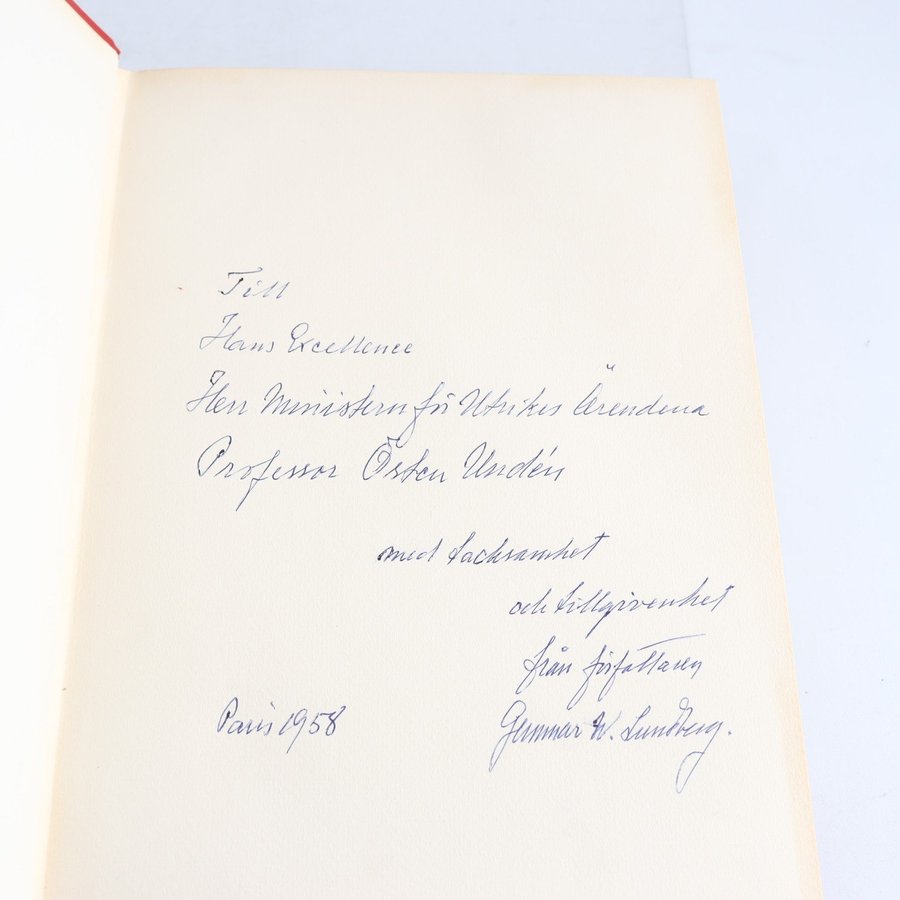 Till
Hans Excellence
Herr Ministern för Utrikes Ärendena
Professor Östen Undén
med tacksamhet
och tillgivenhet
från författaren
Gunnar W. Lundberg.
Paris 1958